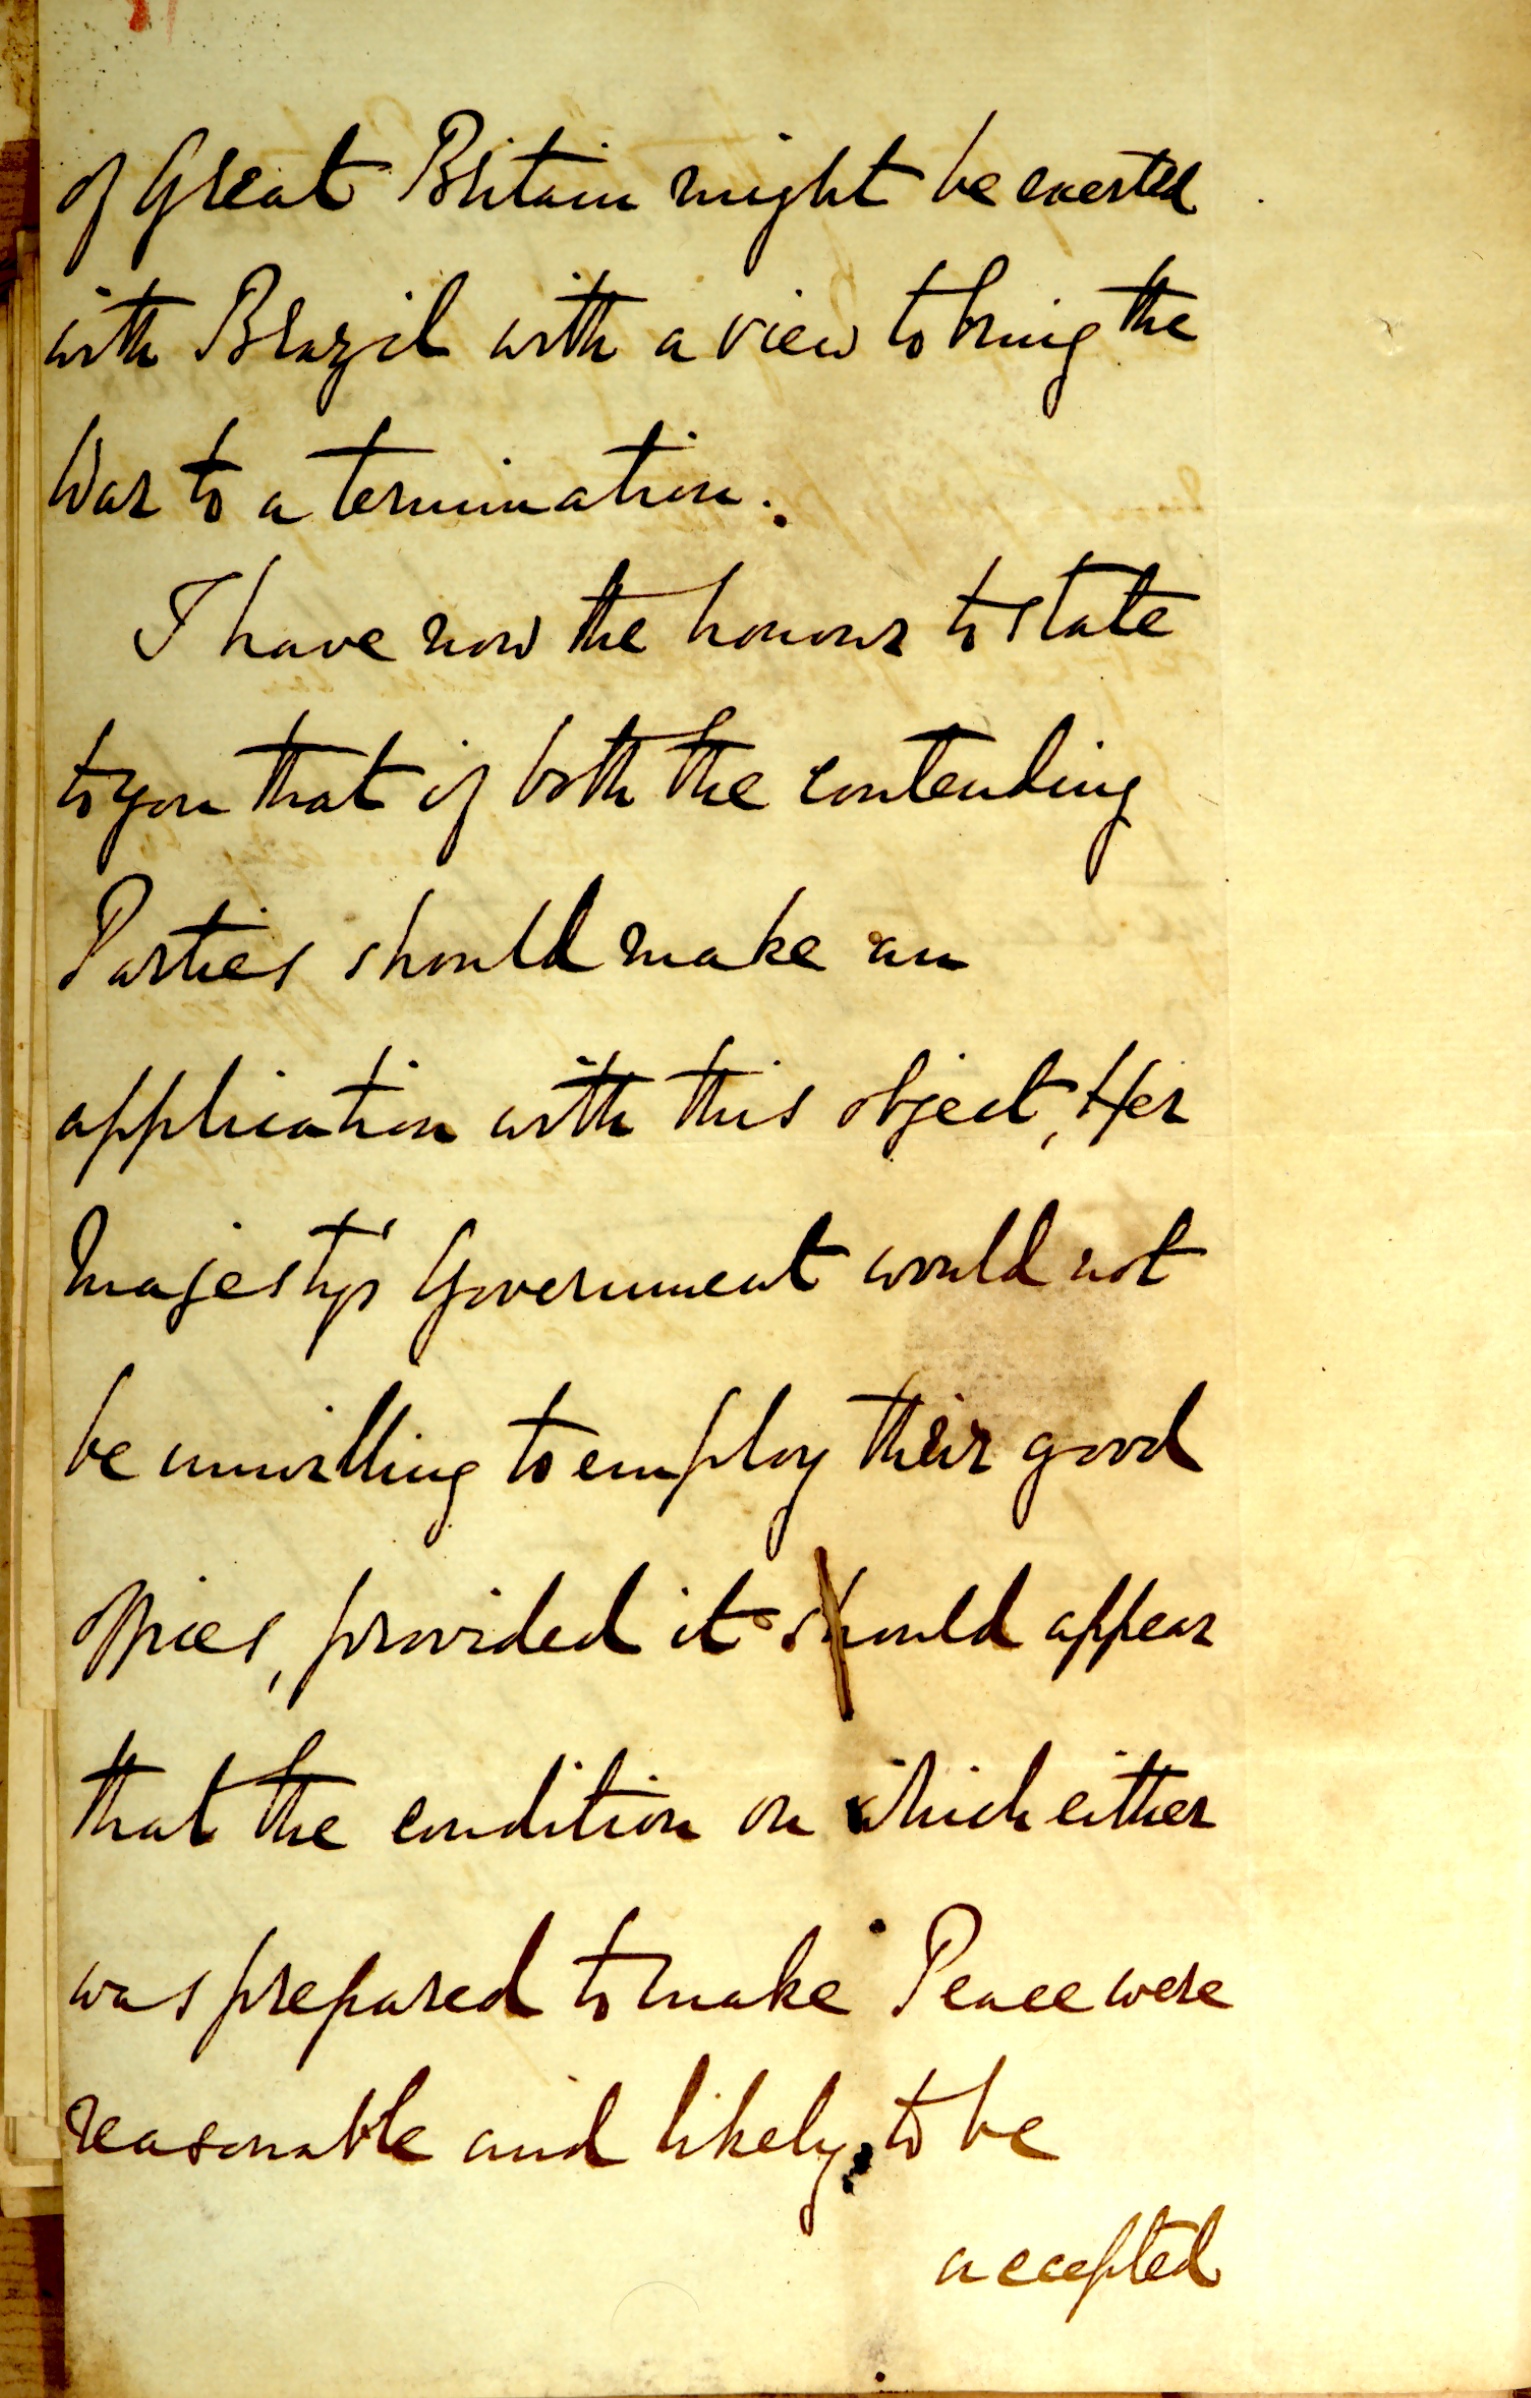 of Great Britain might be exerted
with Brazil with a view to bring the
War to a termination.
I have now the honour to state
to you that if both the contending
Parties should make an
application with this object, Her
Majesty's Government would not
be unwilling to employ their good
offices, provided it should appear
that the condition on which either
was prepared to make Peace were
reasonable and likely to be
accepted